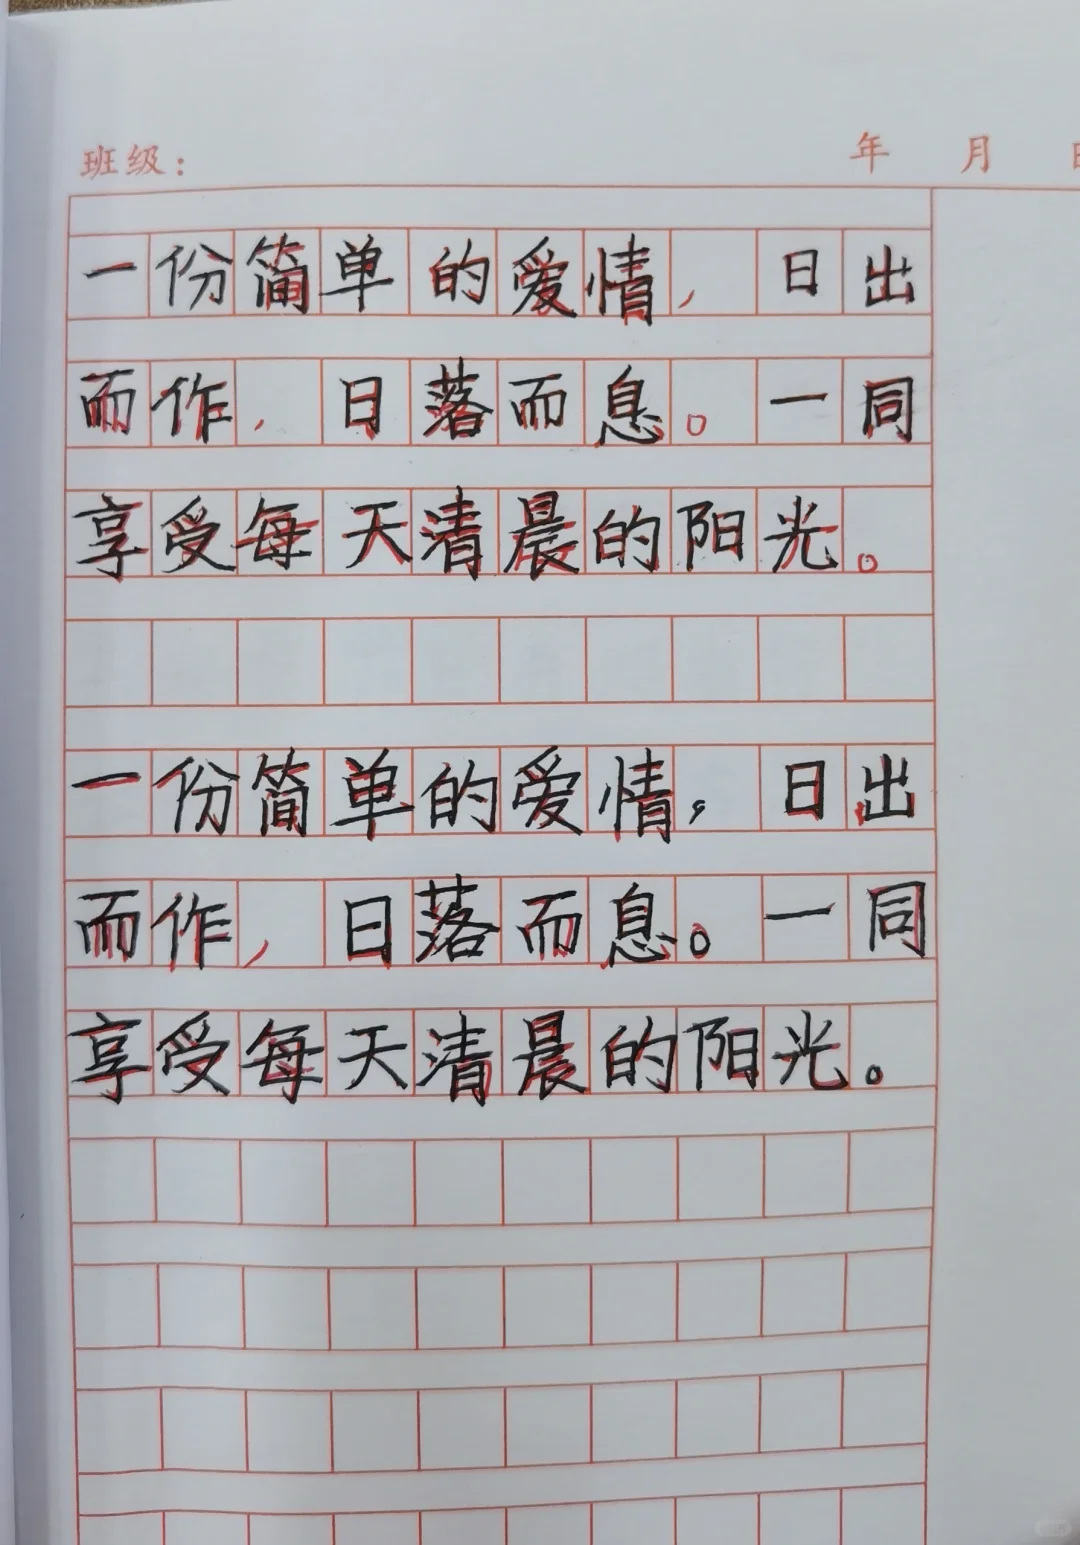 班级： 年 月 日
一份简单的爱情， 日出
而作， 日落而息。一同
享受每天清晨的阳光。
一份简单的爱情， 日出
而作， 日落而息。一同
享受每天清晨的阳光。